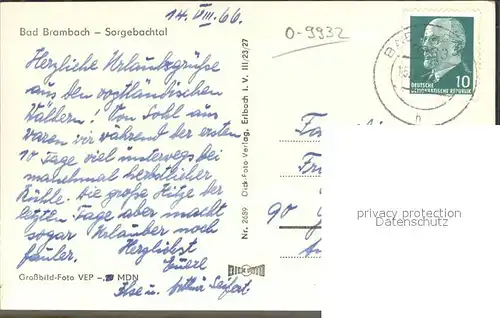 14. VIII. 66.
O-9932
Bad Brambach – Sorgebachtal
Herzliche Urlaubsgrüße
aus den vogtländischen
Wäldern! Von Sohl aus
waren wir während der ersten
10 Tage viel unterwegs bei
manchmal herbstlicher
Kühle. Die große Hitze der
letzten Tage aber macht
sogar Urlauber noch
fauler.
Herzlichst
Eure
Ilse u. Arthur Seifert.
Großbild-Foto VEP – MDN
Nr. 2689 Dick-Foto-Verlag, Erlbach i. V. III/23/27
DICK FOTO
BAD
10
DEUTSCHE
DEMOKRATISCHE REPUBLIK
h
Fa
Fr
90
privacy protection
Veuskens.de